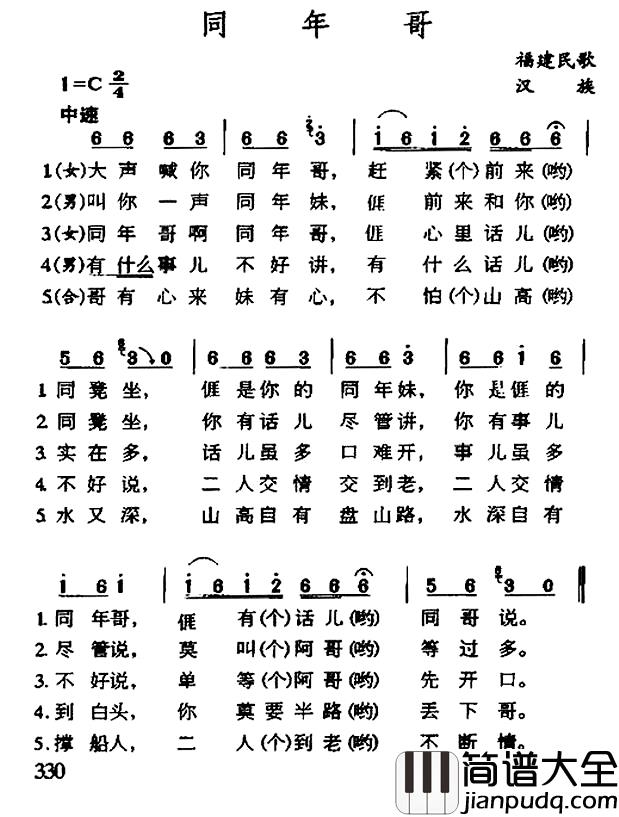 同年哥
福建民歌
1=C 2/4
汉族
中速
6 6 6 3 | 6 6 3 | i 6 i 2 6 6 6 |
1(女)大声喊你 同年哥，赶紧(个)前来(哟)
2(男)叫你一声 同年妹，𠊎前来和你(哟)
3(女)同年哥啊 同年哥，𠊎心里话儿(哟)
4(男)有什么事儿 不好讲，有什么话儿(哟)
5.(合)哥有心来 妹有心，不怕(个)山高(哟)
5 6 3 0 | 6 6 6 3 | 6 6 3 | 6 6 i 6 |
1.同凳坐，𠊎是你的 同年妹，你是𠊎的
2.同凳坐，你有话儿 尽管讲，你有事儿
3.实在多，话儿虽多 口难开，事儿虽多
4.不好说，二人交情 交到老，二人交情
5.水又深，山高自有 盘山路，水深自有
i 6 i | i 6 i 2 6 6 6 | 5 6 3 0 ‖
1.同年哥，𠊎有(个)话儿(哟) 同哥说。
2.尽管说，莫叫(个)阿哥(哟) 等过多。
3.不好说，单等(个)阿哥(哟) 先开口。
4.到白头，你莫要半路(哟) 丢下哥。
5.撑船人，二人(个)到老(哟) 不断情。
330
简谱大全
jianpudq.com